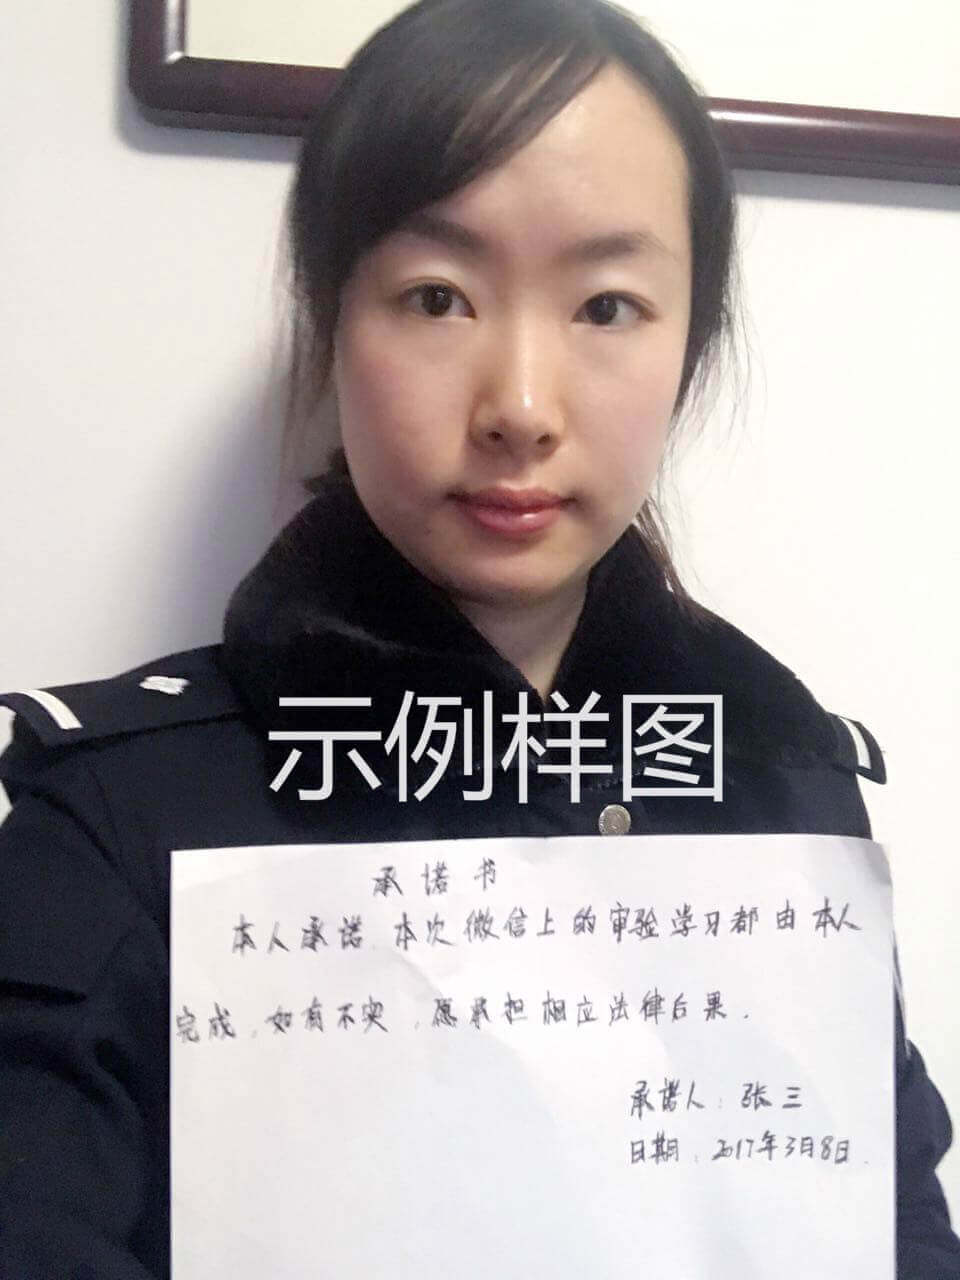 示例样图
承诺书
本人承诺,本次微信上的审验学习都由本人
完成,如有不实,愿承担相应法律后果.
承诺人:张三
日期:2017年3月8日.